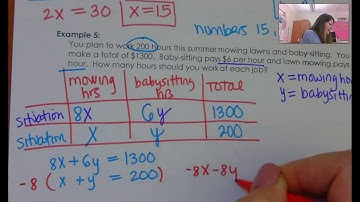 2x = 30 x=15
numbers 15,
Example 5:
You plan to work 200 hours this summer mowing lawns and baby-sitting. You
make a total of $1300. Baby-sitting pays $6 per hour and lawn mowing pays
hour. How many hours should you work at each job?
x = mowing ho
y = babysitti
mowing hrs babysitting hrs Total
situation 8x 6y 1300
situation x y 200
8x + 6y = 1300
-8 ( x + y = 200 ) -8x - 8y